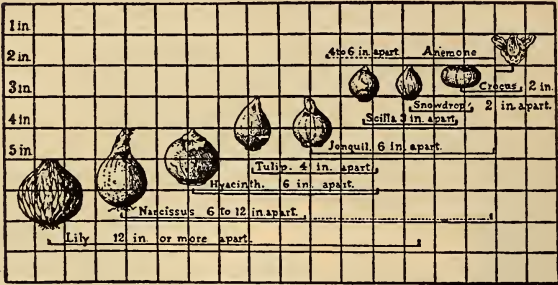 1 in
2 in
4 to 6 in. apart Anemone
3 in
Crocus, 2 in.
Snowdrop, 2 in. apart.
Scilla 3 in. apart
4 in
Jonquil. 6 in. apart.
5 in
Tulip. 4 in. apart.
Hyacinth. 6 in. apart.
Narcissus 6 to 12 in. apart.
Lily 12 in. or more apart.